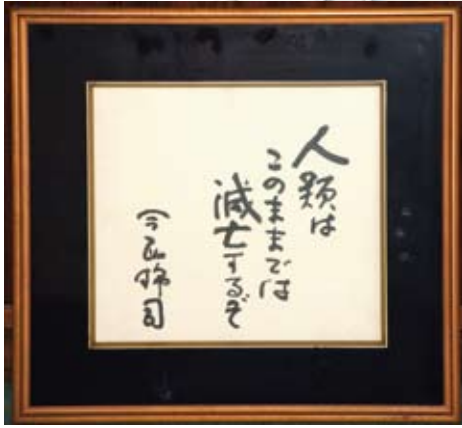 人類は
このままでは
滅亡するぞ
今西錦司